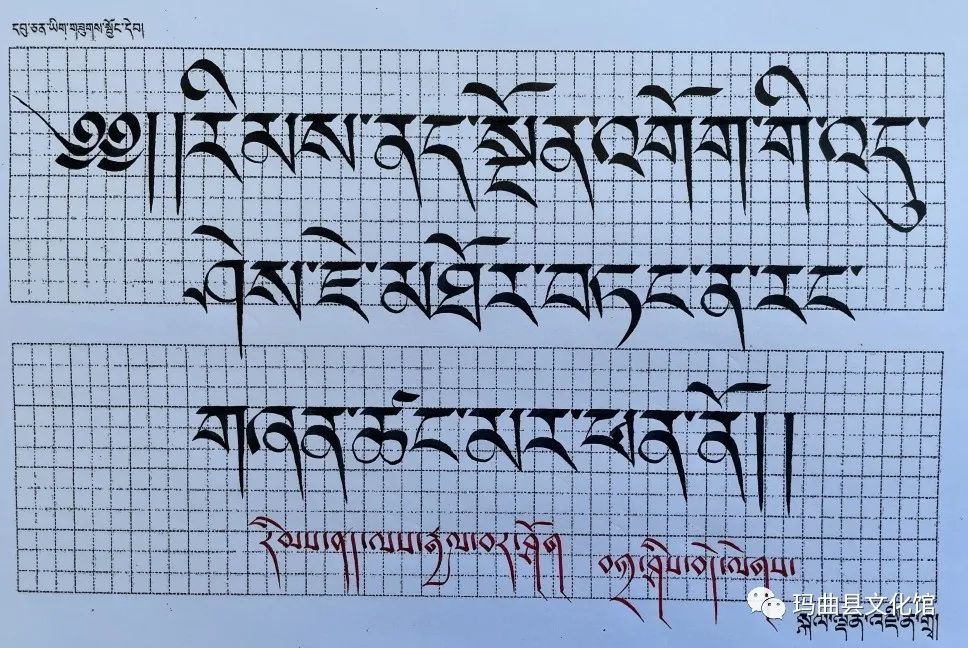 དབུ་ཅན་ཡིག་གཟུགས་སྦྱོང་དེབ།
༄༅། །རིམས་ནད་སྔོན་འགོག་གི་འདུ་
ཤེས་ཇེ་མཐོར་བཏང་ན་རང་
གཞན་ཚང་མར་ཕན་ནོ། །
玛曲县文化馆
སྐལ་ལྡན་འཛིན་གྲྭ།